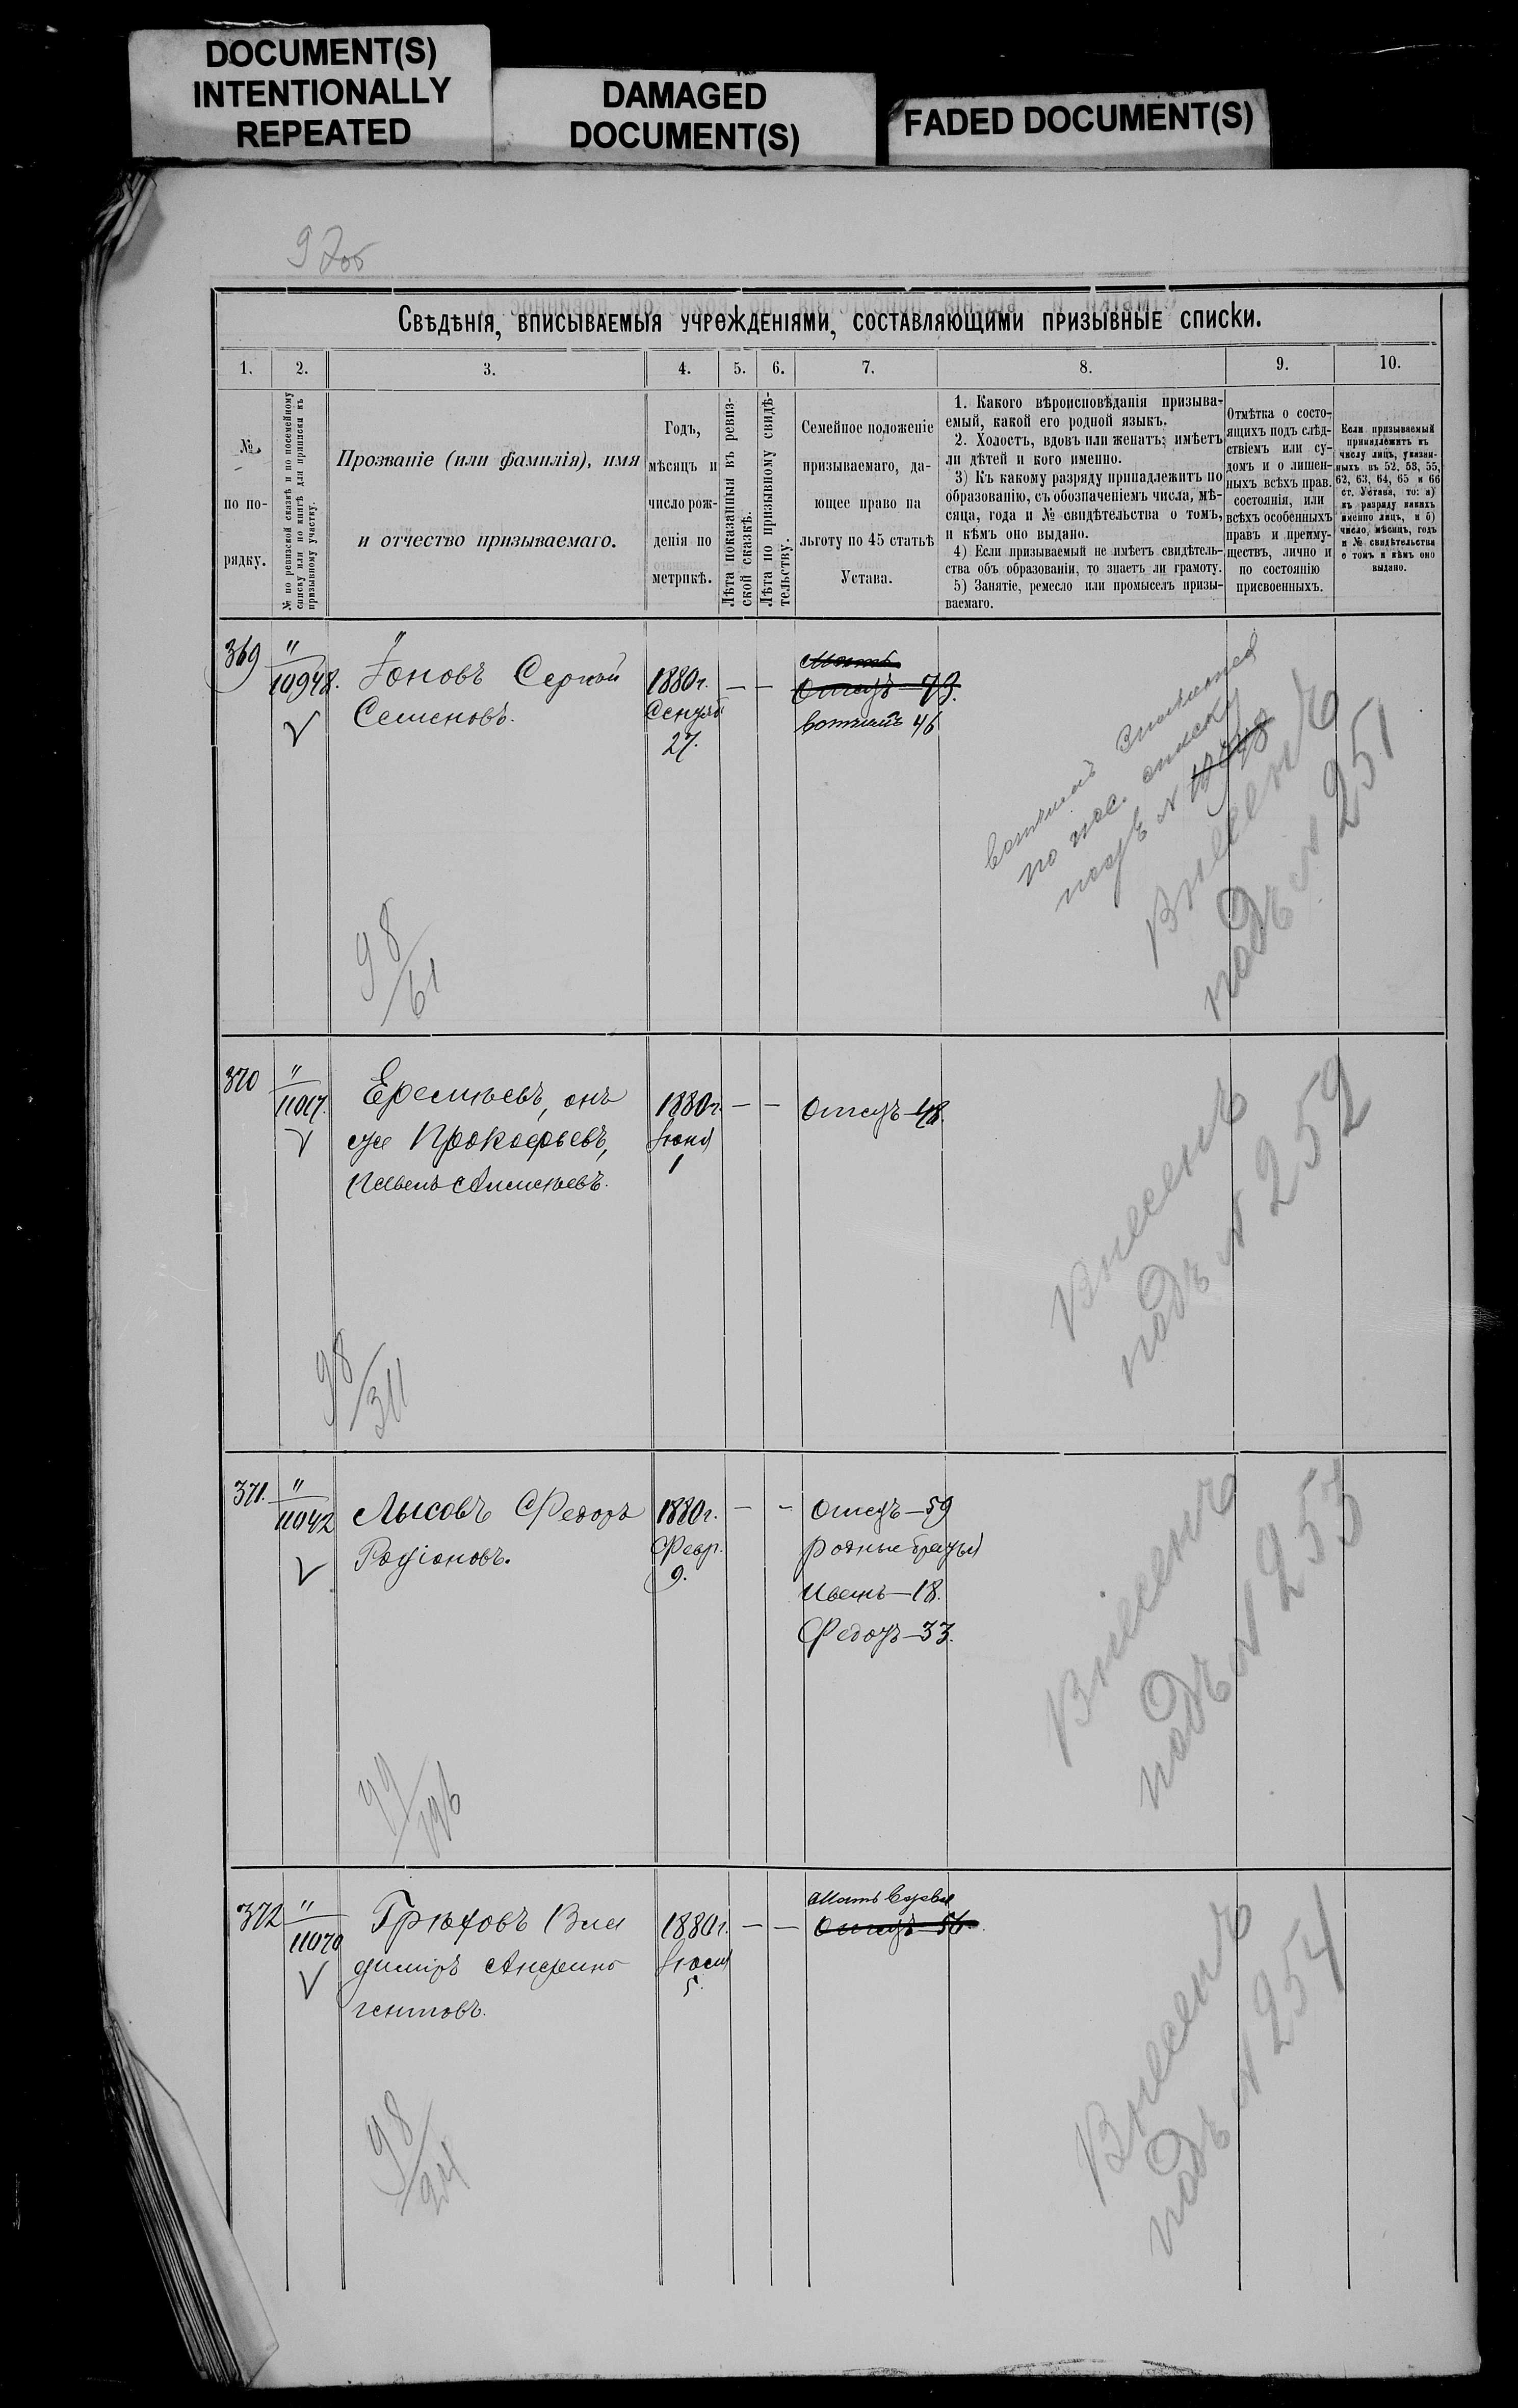 DOCUMENT(S)
INTENTIONALLY
REPEATED
DAMAGED
DOCUMENT(S)
FADED DOCUMENT(S)
Свѣдѣнія, вписываемыя учрежденіями, составляющими призывные списки.
1.
2.
3.
4.
5.
6.
7.
8.
9.
10.
№
по по-
рядку.
№ по ревизской сказкѣ и по посемейному
списку или по книгѣ для приписки къ
призывному участку.
Прозваніе (или фамилія), имя
и отчество призываемаго.
Годъ,
мѣсяцъ и
число рож-
денія по
метрикѣ.
Лѣта показанныя въ ревиз-
ской сказкѣ.
Лѣта по призывному свидѣ-
тельству.
Семейное положеніе
призываемаго, да-
ющее право на
льготу по 45 статьѣ
Устава.
1. Какого вѣроисповѣданія призыва-
емый, какой его родной языкъ.
2. Холостъ, вдовъ или женатъ; имѣетъ
ли дѣтей и кого именно.
3) Къ какому разряду принадлежитъ по
образованію, съ обозначеніемъ числа, мѣ-
сяца, года и № свидѣтельства о томъ,
и кѣмъ оно выдано.
4) Если призываемый не имѣетъ свидѣтель-
ства объ образованіи, то знаетъ ли грамоту.
5) Занятіе, ремесло или промыселъ призы-
ваемаго.
Отмѣтка о состо-
ящихъ подъ слѣд-
ствіемъ или су-
домъ и о лишен-
ныхъ всѣхъ прав.
состоянія, или
всѣхъ особенныхъ
правъ и преиму-
ществъ, лично и
по состоянію
присвоенныхъ.
Если призываемый
принадлежитъ къ
числу лицъ, указан-
ныхъ въ 52, 53, 55,
62, 63, 64, 65 и 66
ст. Устава, то: а)
къ разряду какихъ
именно лицъ, и б)
число, мѣсяцъ, годъ
и № свидѣтельства
о томъ и кѣмъ оно
выдано.
369
"
10948.
Іоновъ Сергѣй
Семеновъ.
1880 г.
Сентяб
27.
— —
Мать
Отецъ — 73.
вотчимъ 46
вотчимъ значится
по пос. списку
подъ №
Внесенъ
подъ № 251
98/61
370
"
11017.
Еремѣевъ, онъ
же Прокофьевъ,
Павелъ Алексѣевъ.
1880 г.
Іюня
1
— —
Отецъ — 48.
Внесенъ
подъ № 252
98/311
371.
"
11042
Лысовъ Федоръ
Родіоновъ.
1880 г.
Февр.
9.
— —
Отецъ — 59
родные братья
Иванъ — 18.
Федотъ — 33.
Внесенъ
подъ № 253
372
"
11070
Грѣховъ Вла
диміръ Анфино
гентовъ.
1880 г.
Іюля
5.
— —
Мать вдова
Отецъ 56.
Внесенъ
подъ № 254
98/24